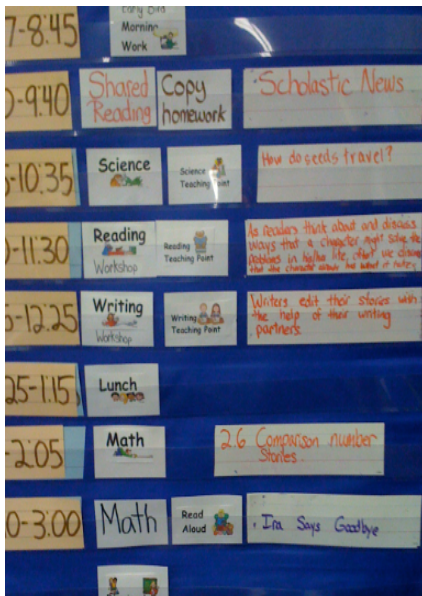 7-8:45
Early Bird
Morning
Work
0-9:40
Shared
Reading
Copy
homework
Scholastic News
5-10:35
Science
Science
Teaching Point
How do seeds travel?
0-11:30
Reading
Workshop
Reading
Teaching Point
As readers think about and discuss
ways that a character might solve the
problems in his/her life, often we
that the character
5-12:25
Writing
Workshop
Writing
Teaching Point
Writers edit their stories with
the help of their writing
partners.
25-1:15
Lunch
-2:05
Math
2.6 Comparison number
Stories.
0-3:00
Math
Read
Aloud
Ira Says Goodbye